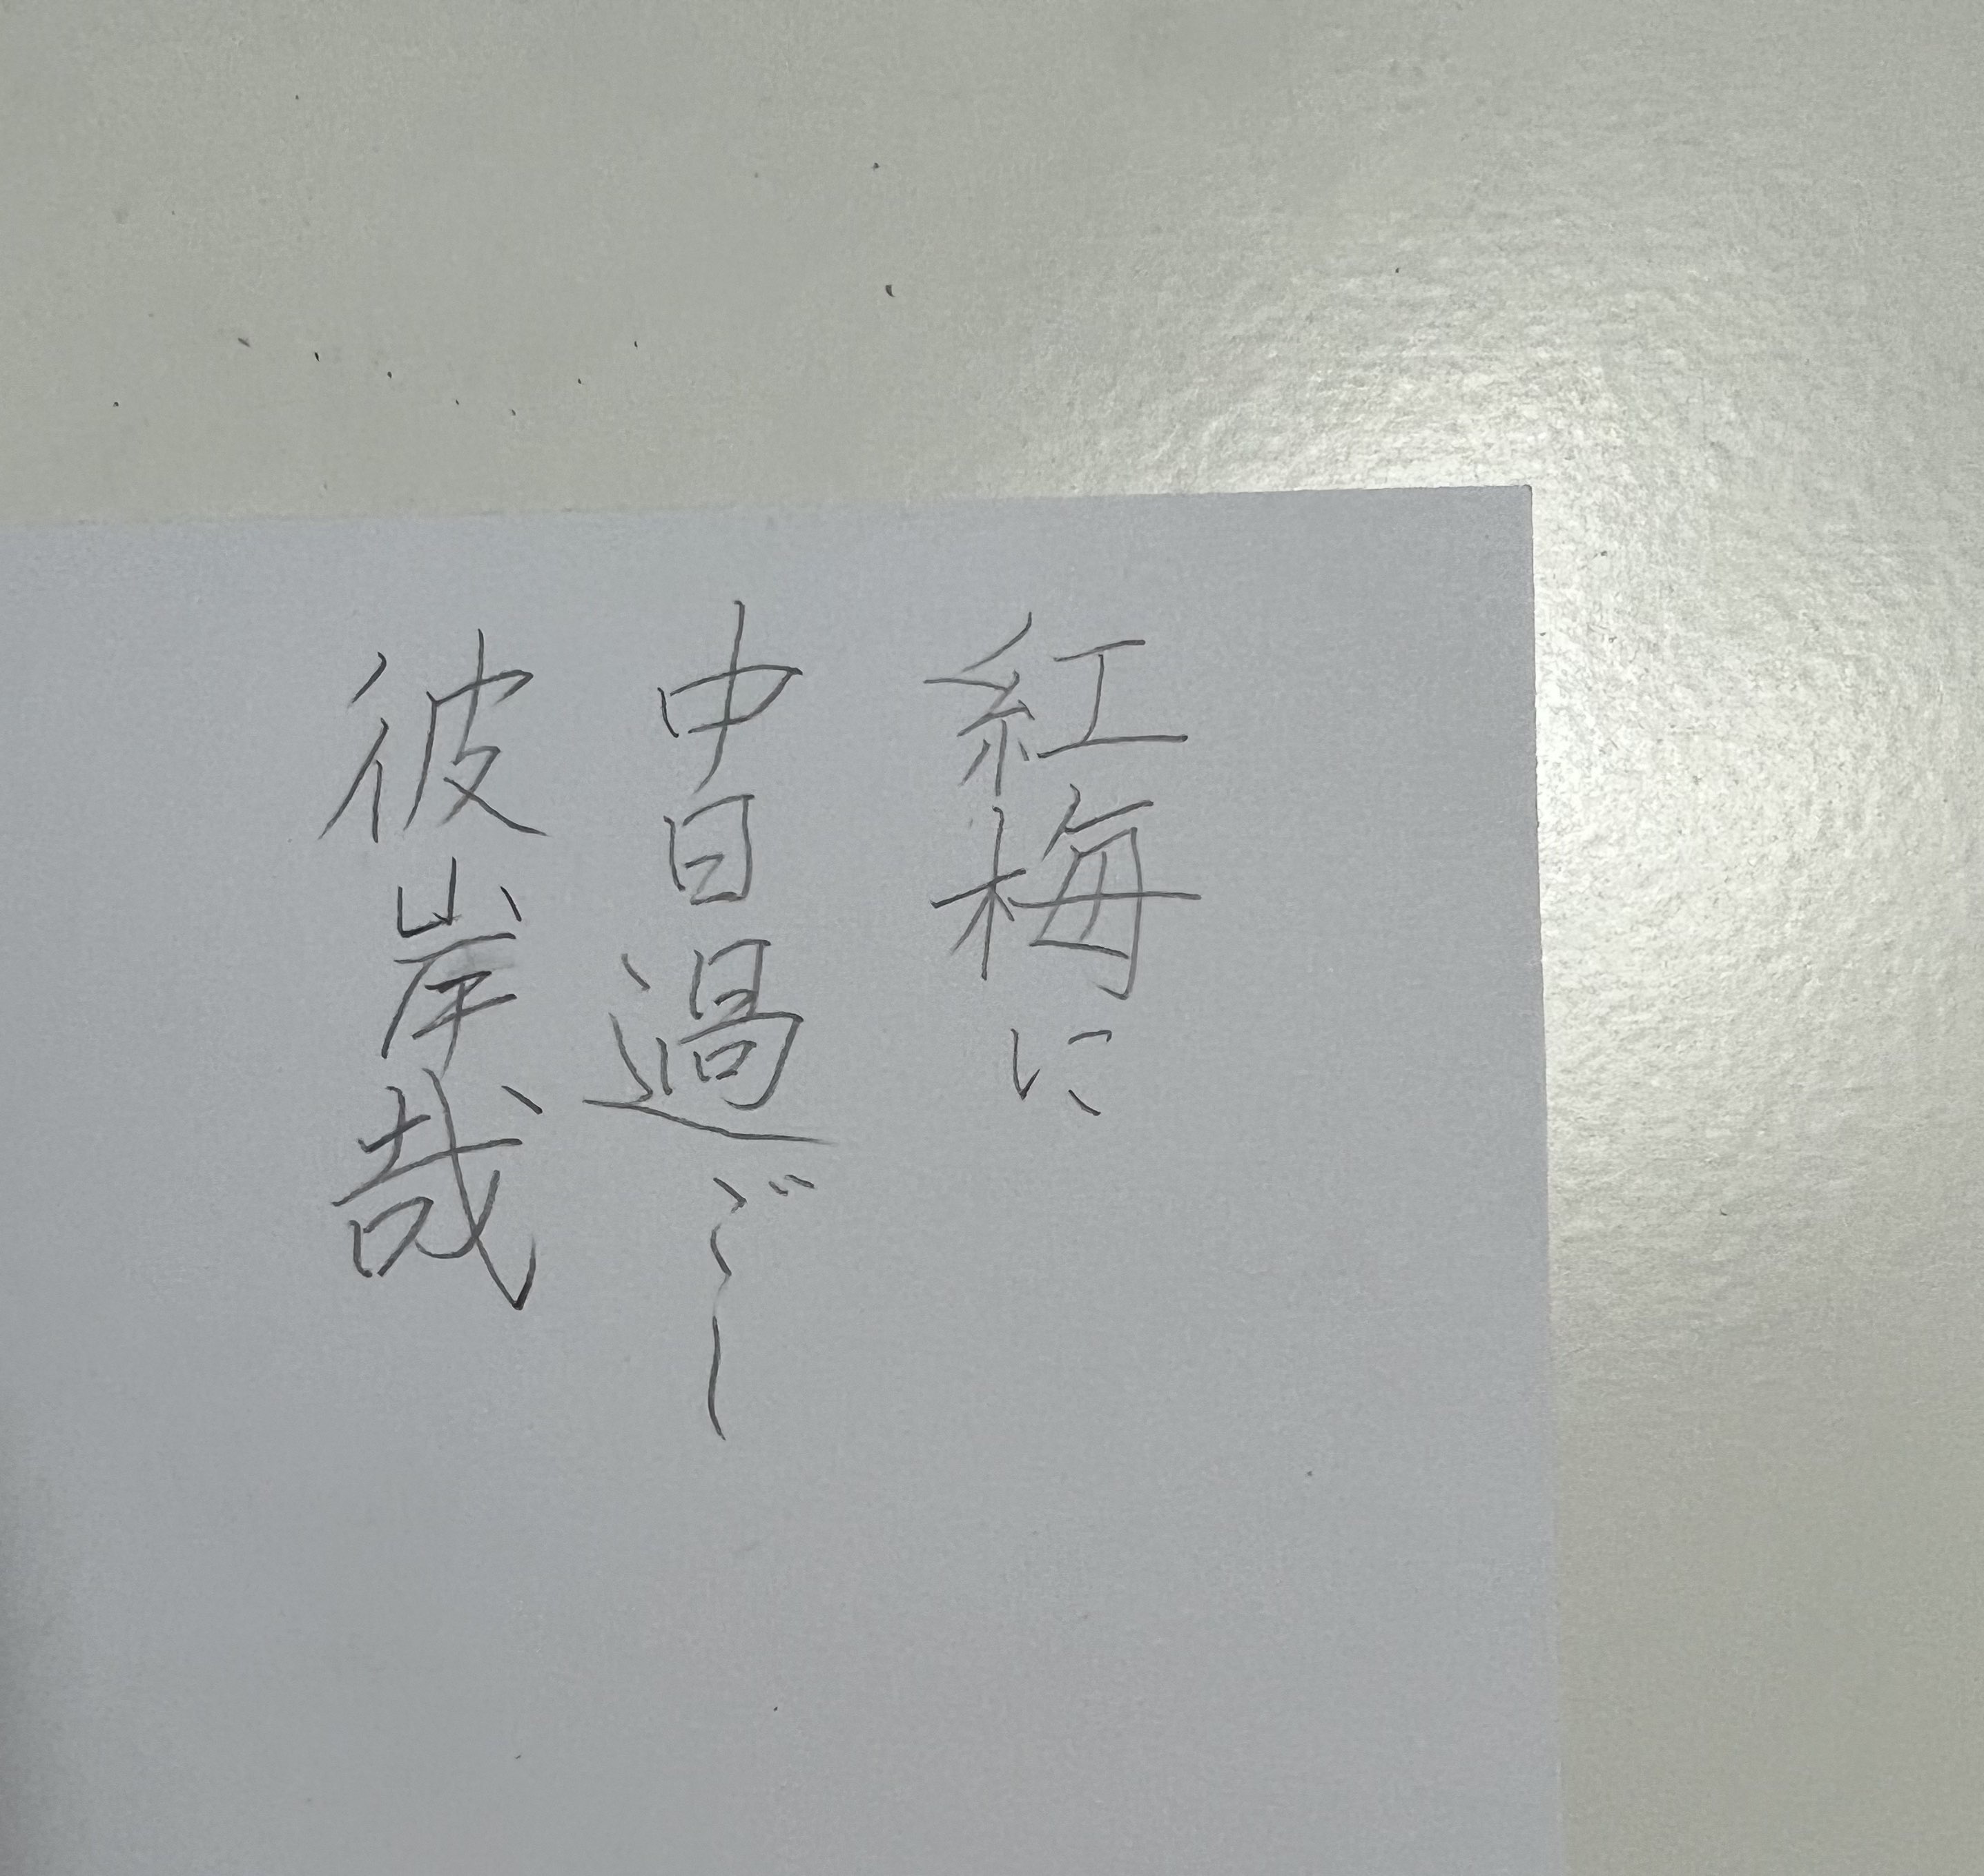 紅梅に
中日過ごし
彼岸哉